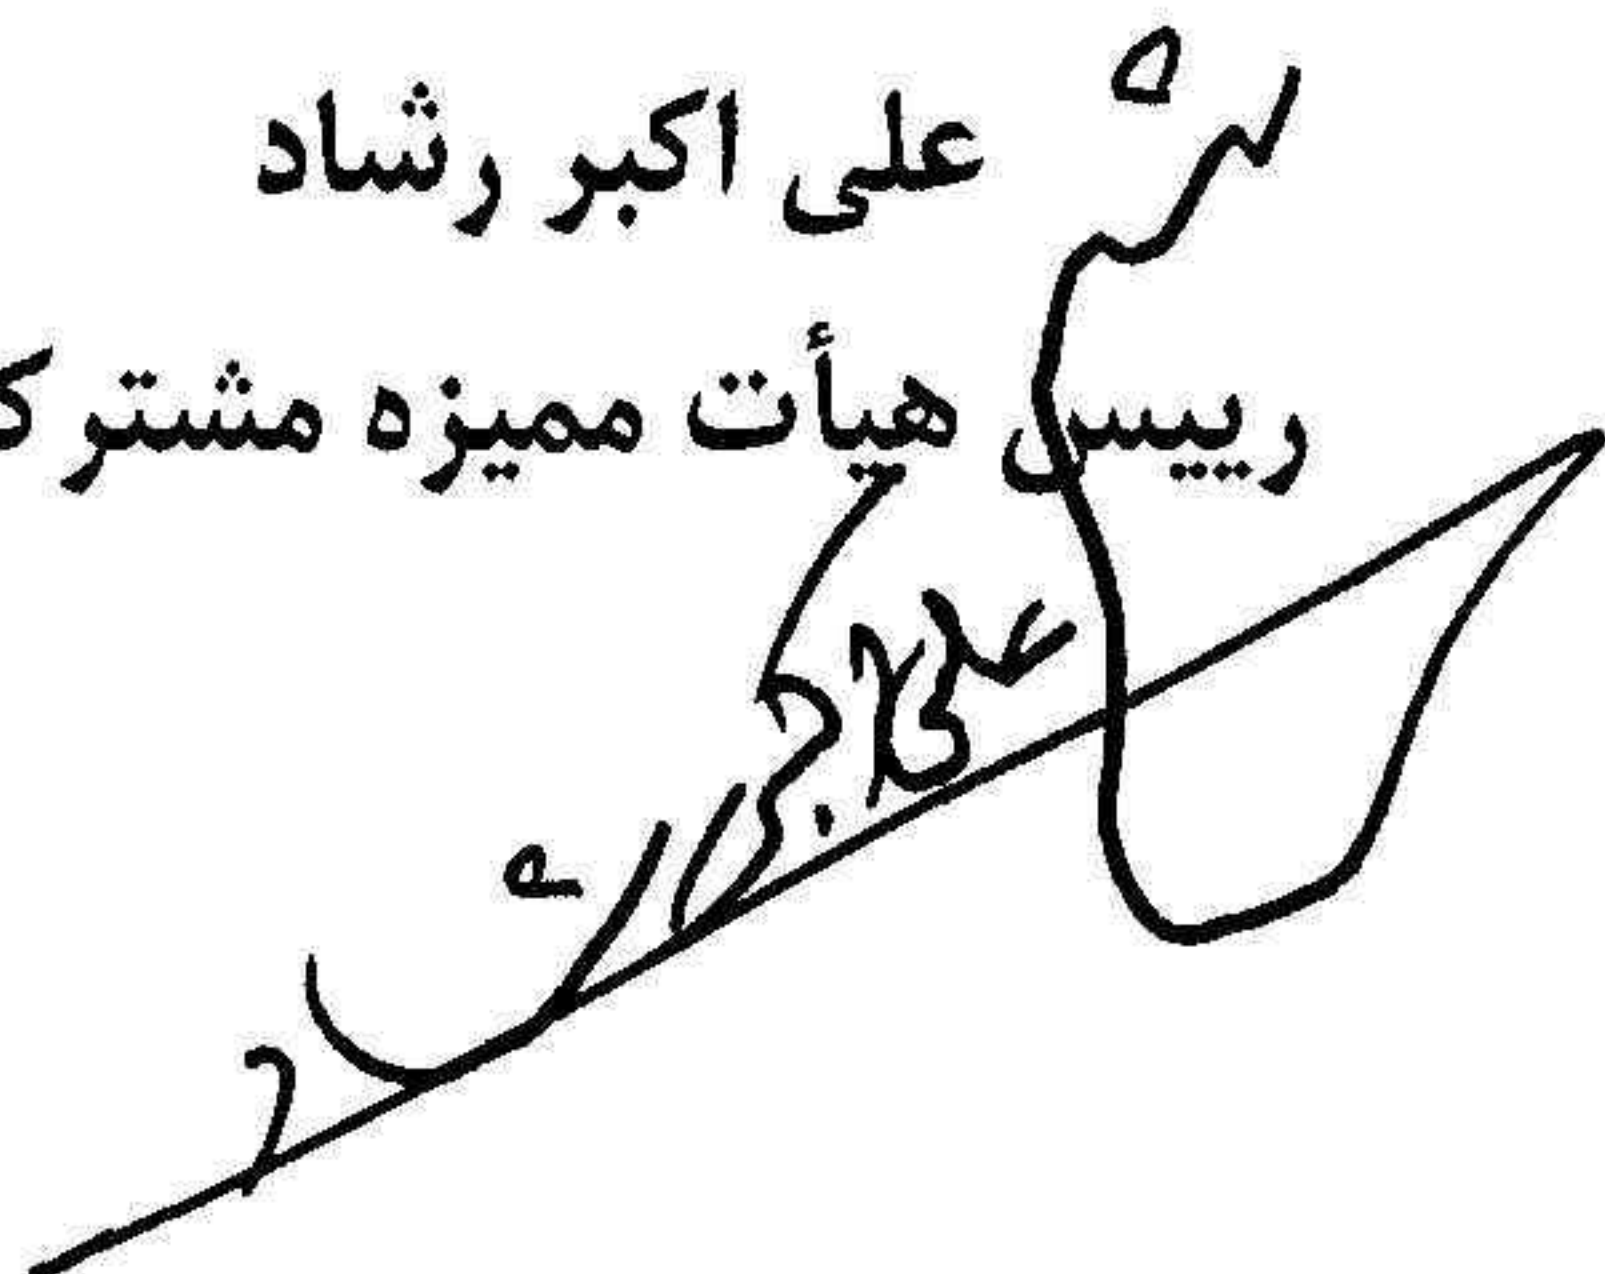 علی اکبر رشاد
رییس هیأت ممیزه مشترک
علی اکبر رشاد